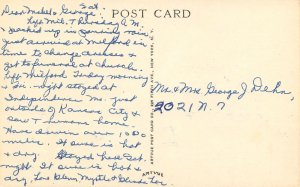 Sat.
POST CARD
Dear Mabel & George:
Left Mil. Thursday A.M.
Packed up in pouring rain
Just arrived at Milford in
time to change dresses &
get to funeral at church
Left Milford Friday morning
& Fri. night stayed at
Independence Mo. just
outside of Kansas City &
saw Trumans home.
Have driven over 1000
miles. It sure is hot
& dry. Stayed here Sat.
night. It sure is hot &
dry. Love Glenn, Myrtle &
Mr & Mrs George J Dehn,
2021 N. 7